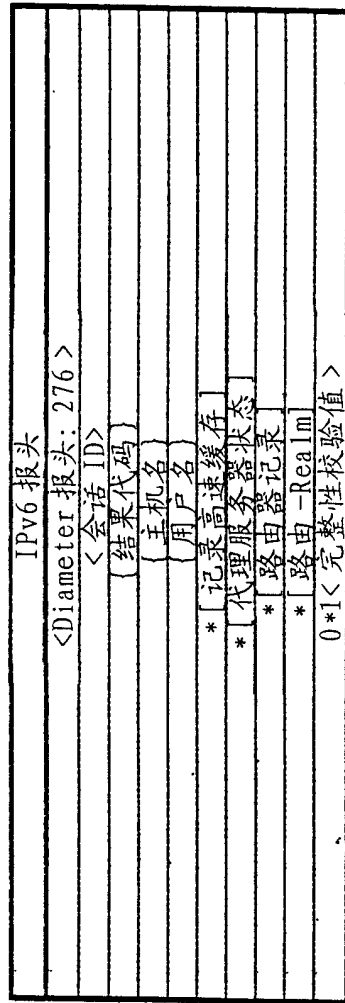 IPv6 报头
<Diameter 报头: 276 >
<会话 ID>
{结果代码}
{主机名}
{用户名}
*[记录高速缓存]
*[代理服务器状态]
*[路由器记录]
*[路由 -Realm]
0*1< 完整性校验值 >